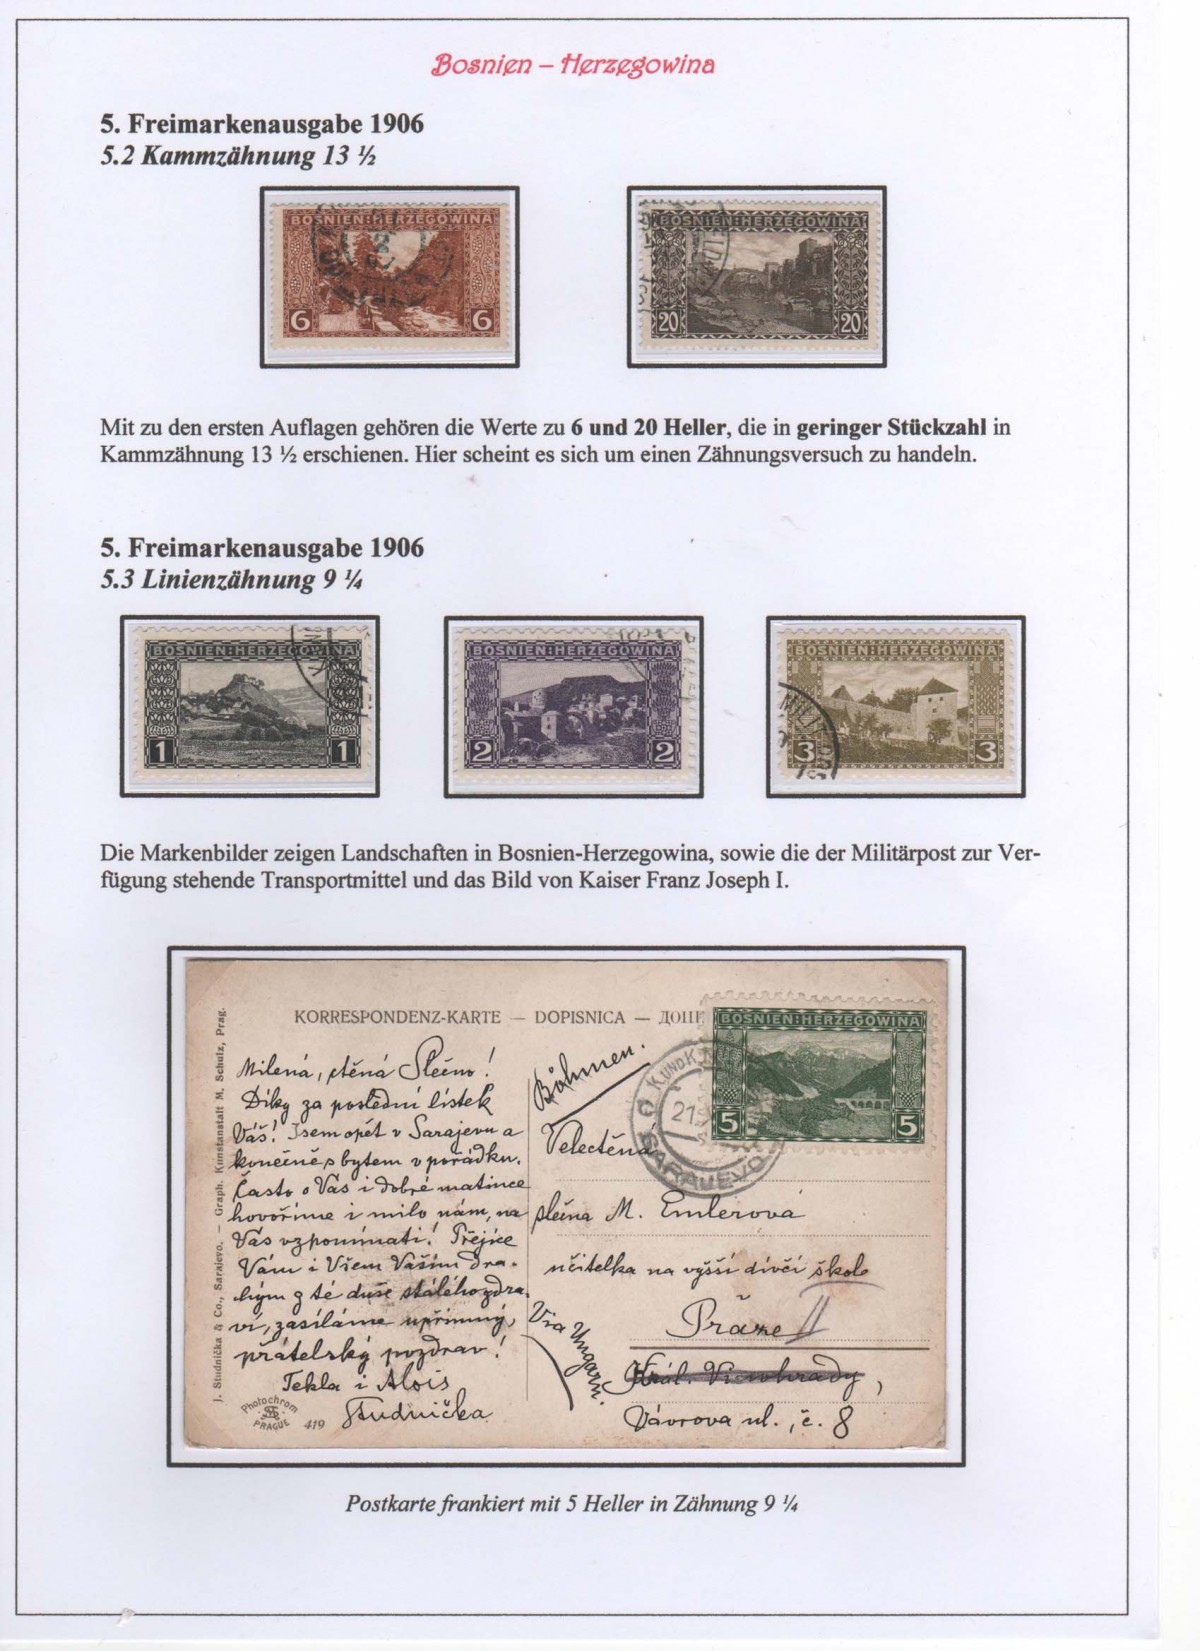 Bosnien – Herzegowina
5. Freimarkenausgabe 1906
5.2 Kammzähnung 13 ½
BOSNIEN:HERZEGOWINA
6 6
BOSNIEN:HERZEGOWINA
20 20
Mit zu den ersten Auflagen gehören die Werte zu 6 und 20 Heller, die in geringer Stückzahl in
Kammzähnung 13 ½ erschienen. Hier scheint es sich um einen Zähnungsversuch zu handeln.
5. Freimarkenausgabe 1906
5.3 Linienzähnung 9 ¼
BOSNIEN:HERZEGOWINA
1 1
BOSNIEN:HERZEGOWINA
2 2
BOSNIEN:HERZEGOWINA
MILIT
3 3
Die Markenbilder zeigen Landschaften in Bosnien-Herzegowina, sowie die der Militärpost zur Ver-
fügung stehende Transportmittel und das Bild von Kaiser Franz Joseph I.
KORRESPONDENZ-KARTE — DOPISNICA —
BOSNIEN:HERZEGOWINA
5 5
K. UND K.
21
SARAJEVO
J. Studnička & Co., Sarajevo. – Graph. Kunstanstalt M. Schulz, Prag.
Milená, ctěná Slečno!
Díky za poslední lístek
Váš! Jsem opět v Sarajevu a
konečně s bytem v pořádku.
Často o Vás i dobré matince
hovoříme i milo nám, na
Vás vzpomínati! Přejíce
Vám i Všem Vaším dra-
hým z té duše stálého zdra-
ví, zasíláme upřímný,
přátelský pozdrav!
Tekla i Alois
Studnička
Photochrom
PRAGUE
419
Böhmen.
Velectěná
slečna M. Emlerová
učitelka na vyšší dívčí škole
Praze II
Král. Vinohrady,
Vávrova ul., č. 8
Via Ungarn.
Postkarte frankiert mit 5 Heller in Zähnung 9 ¼